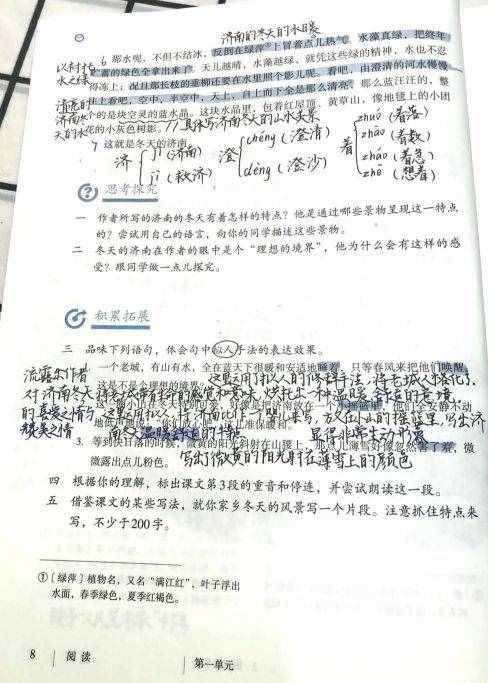 济南的冬天的水暖
6 那水呢，不但不结冰，反倒在绿萍①上冒着点儿热气，水藻真绿，把终年
贮蓄的绿色全拿出来了。天儿越晴，水藻越绿，就凭这些绿的精神，水也不忍
以衬托
水之绿
得冻上；况且那长枝的垂柳还要在水里照个影儿呢。看吧，由澄清的河水慢慢
往上看吧，空中，半空中，天上，自上而下全是那么清亮，那么蓝汪汪的，整
清亮的
济南水
天的水
个的是块空灵的蓝水晶。这块水晶里，包着红屋顶，黄草山，像地毯上的小团
花的小灰色树影。
//具体写济南冬天的山水美景
7 这就是冬天的济南。
济 jǐ（济南）
jì（救济）
澄 chéng（澄清）
dèng（澄沙）
着 zhuó（着落）
zhāo（着数）
zháo（着急）
zhe（想着）
思考探究
一 作者所写的济南的冬天有着怎样的特点？他是通过哪些景物呈现这一特点
的？尝试用自己的语言，向你的同学描述这些景物。
二 冬天的济南在作者的眼中是个“理想的境界”，他为什么会有这样的感
受？跟同学做一点儿探究。
积累拓展
三 品味下列语句，体会句中拟人手法的表达效果。
1. 一个老城，有山有水，全在蓝天下很暖和安适地睡着，只等春风来把他们唤醒，
这是不是个理想的境界？
流露出作者
对济南冬天
的喜爱之情与
赞美之情
这里运用了拟人的修辞手法，将老城人格化，
将老城带有特的感觉和意味，烘托出一种温暖、舒适的意境。
这里运用拟人，将济南比作一了婴儿，
放在小山的摇篮里，写出济
南冬天温暖舒适的特点
显得非常生动形象
3. 等到快日落的时候，微黄的阳光斜射在山腰上，那点儿薄雪好像忽然害了羞，微
微露出点儿粉色。
写出了微黄的阳光射在薄雪上的颜色
四 根据你的理解，标出课文第3段的重音和停连，并尝试朗读这一段。
五 借鉴课文的某些写法，就你家乡冬天的风景写一个片段。注意抓住特点来
写，不少于200字。
①〔绿萍〕植物名，又名“满江红”，叶子浮出
水面，春季绿色，夏季红褐色。
8 阅读
第一单元